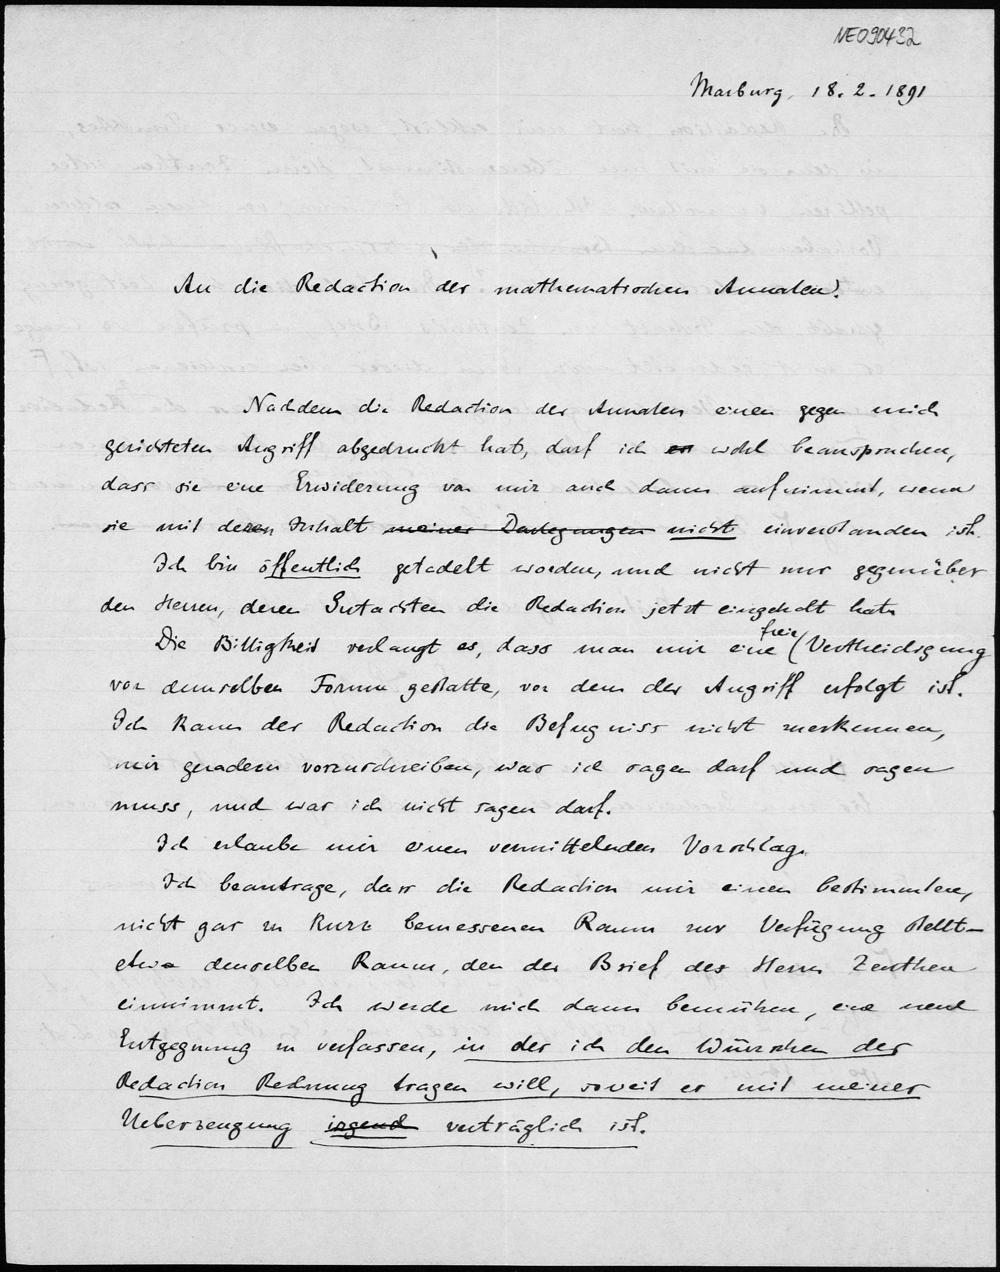 NE090432
Marburg, 18. 2. 1891
An die Redaction der mathematischen Annalen!
Nachdem die Redaction der Annalen einen gegen mich
gerichteten Angriff abgedruckt hat, darf ich es wohl beanspruchen,
dass sie eine Erwiderung von mir auch dann aufnimmt, wenn
sie mit deren Inhalt meiner Darlegungen nicht einverstanden ist.
Ich bin öffentlich getadelt worden, und nicht nur gegenüber
den Herren, deren Gutachten die Redaction jetzt eingeholt hat.
Die Billigkeit verlangt es, dass man mir eine freie Vertheidigung
vor demselben Forum gestatte, vor dem der Angriff erfolgt ist.
Ich kann der Redaction die Befugniss nicht zuerkennen,
mir geradezu vorzuschreiben, was ich sagen darf und sagen
muss, und was ich nicht sagen darf.
Ich erlaube mir einen vermittelnden Vorschlag.
Ich beantrage, dass die Redaction mir einen bestimmten,
nicht gar zu kurz bemessenen Raum zur Verfügung stellt –
etwa denselben Raum, den der Brief des Herrn Zeuthen
einnimmt. Ich werde mich dann bemühen, eine neue
Entgegnung zu verfassen, in der ich den Wünschen der
Redaction Rechnung tragen will, soweit es mit meiner
Ueberzeugung irgend verträglich ist.